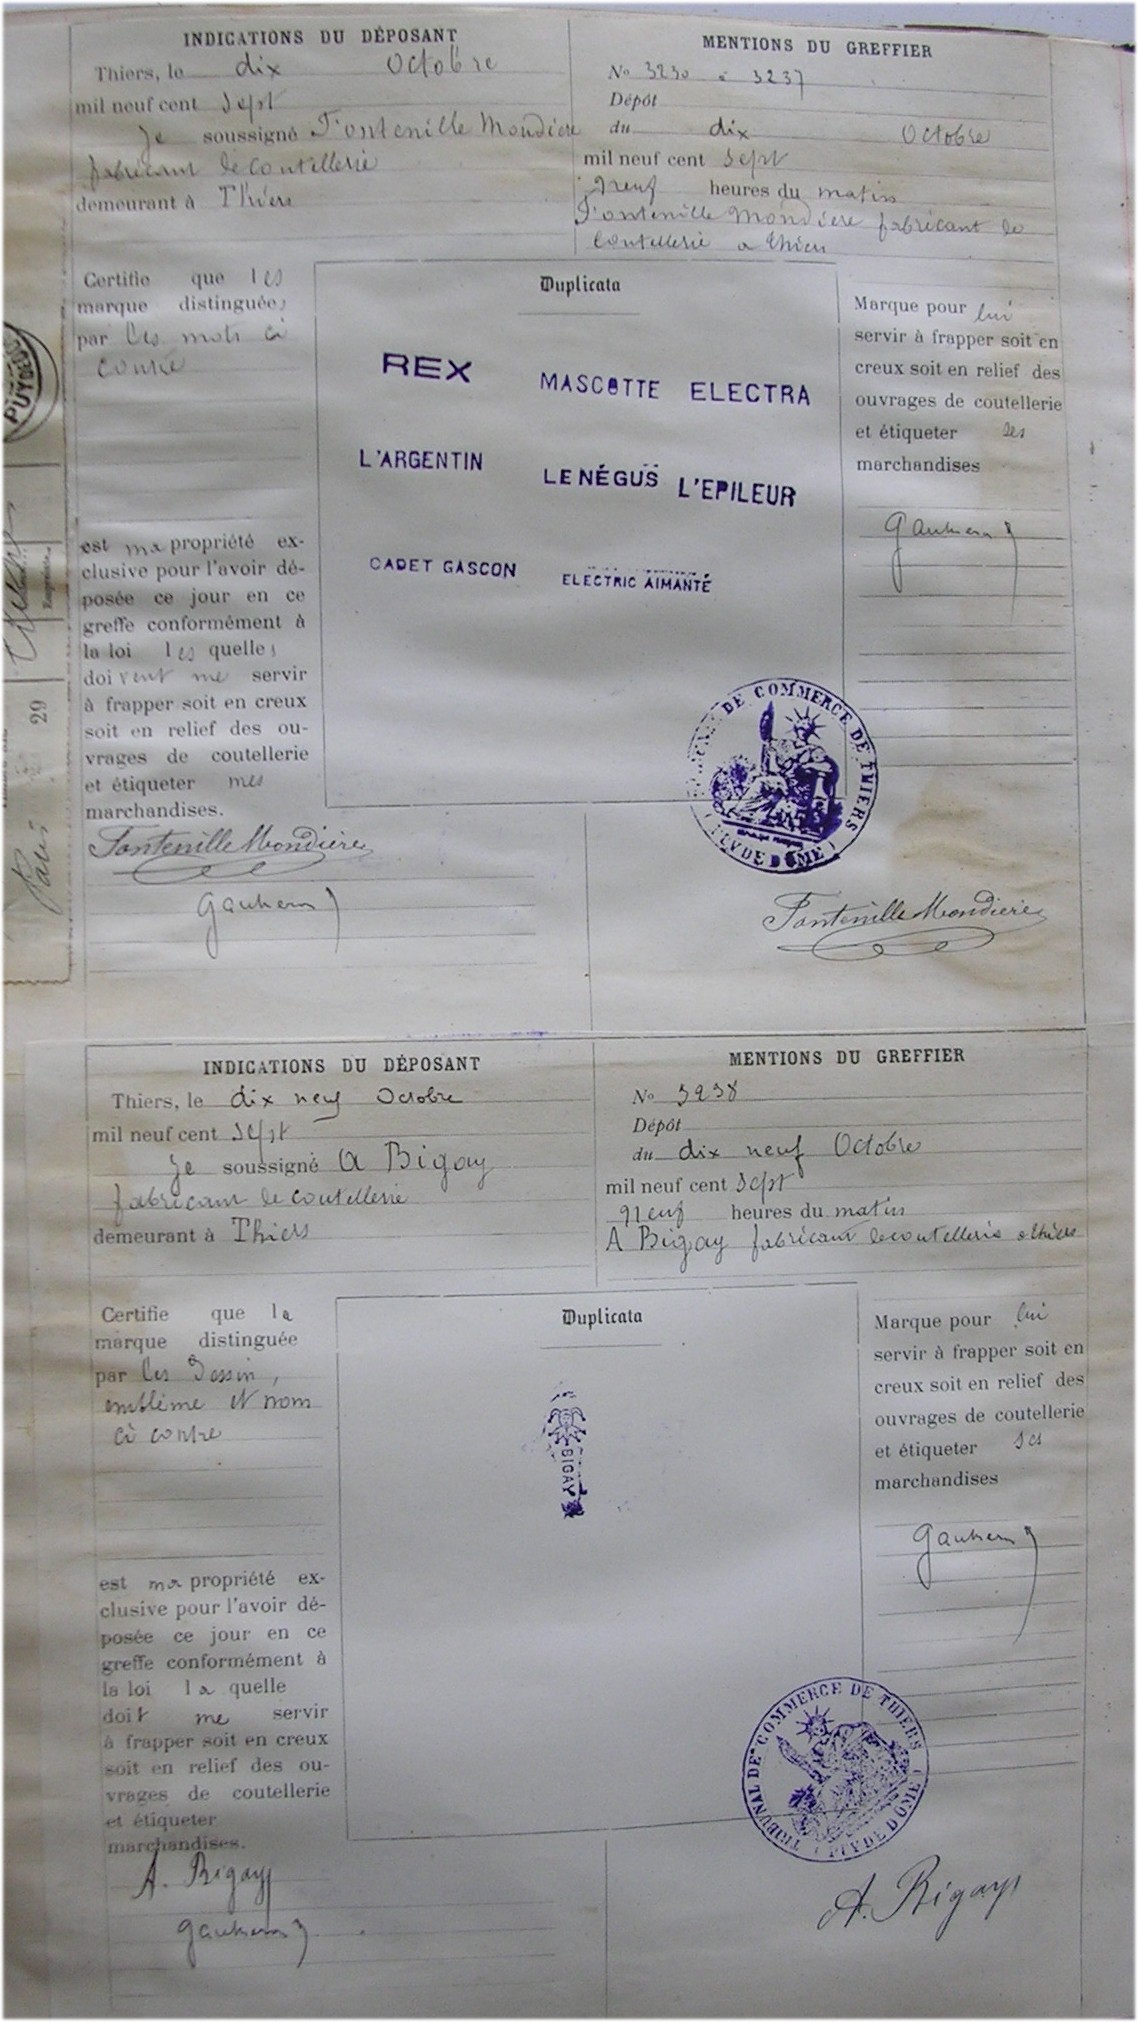 INDICATIONS DU DÉPOSANT
Thiers, le dix Octobre
mil neuf cent sept
Je soussigné Fontenille Mondière
fabricant de coutellerie
demeurant à Thiers
MENTIONS DU GREFFIER
No 3230 à 3237
Dépôt
du dix Octobre
mil neuf cent sept
neuf heures du matin
Fontenille Mondière fabricant de
coutellerie a thiers
Certifie que les
marque distinguées
par les mots ci
contre
est ma propriété ex-
clusive pour l'avoir dé-
posée ce jour en ce
greffe conformément à
la loi les quelles
doivent me servir
à frapper soit en creux
soit en relief des ou-
vrages de coutellerie
et étiqueter mes
marchandises.
Fontenille Mondière
Duplicata
REX
MASCOTTE ELECTRA
L'ARGENTIN
LE NÉGUS L'EPILEUR
CADET GASCON
ELECTRIC AIMANTÉ
Marque pour lui
servir à frapper soit en
creux soit en relief des
ouvrages de coutellerie
et étiqueter ses
marchandises
DE COMMERCE DE THIERS
(PUY DE DÔME)
Fontenille Mondière
PUY DE
29
Paris
INDICATIONS DU DÉPOSANT
Thiers, le dix neuf Octobre
mil neuf cent sept
Je soussigné A Bigay
fabricant de coutellerie
demeurant à Thiers
MENTIONS DU GREFFIER
No 3238
Dépôt
du dix neuf Octobre
mil neuf cent sept
neuf heures du matin
A Bigay fabricant de coutellerie a thiers
Certifie que la
marque distinguée
par les Dessin,
emblème et nom
ci contre
est ma propriété ex-
clusive pour l'avoir dé-
posée ce jour en ce
greffe conformément à
la loi la quelle
doit me servir
à frapper soit en creux
soit en relief des ou-
vrages de coutellerie
et étiqueter
marchandises.
A. Bigay
Duplicata
BIGAY
Marque pour lui
servir à frapper soit en
creux soit en relief des
ouvrages de coutellerie
et étiqueter ses
marchandises
TRIBUNAL DE COMMERCE DE THIERS
(PUY DE DÔME)
A. Bigay